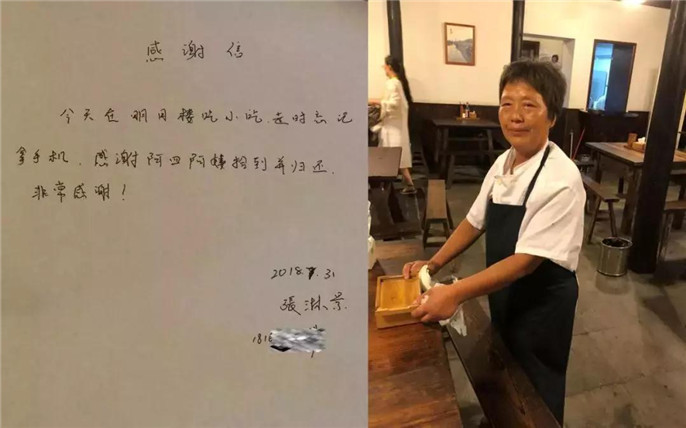 感谢信
今天在明月楼吃小吃,走时忘记
拿手机,感谢阿四阿姨拾到并归还,
非常感谢!
2018.7.31
1816